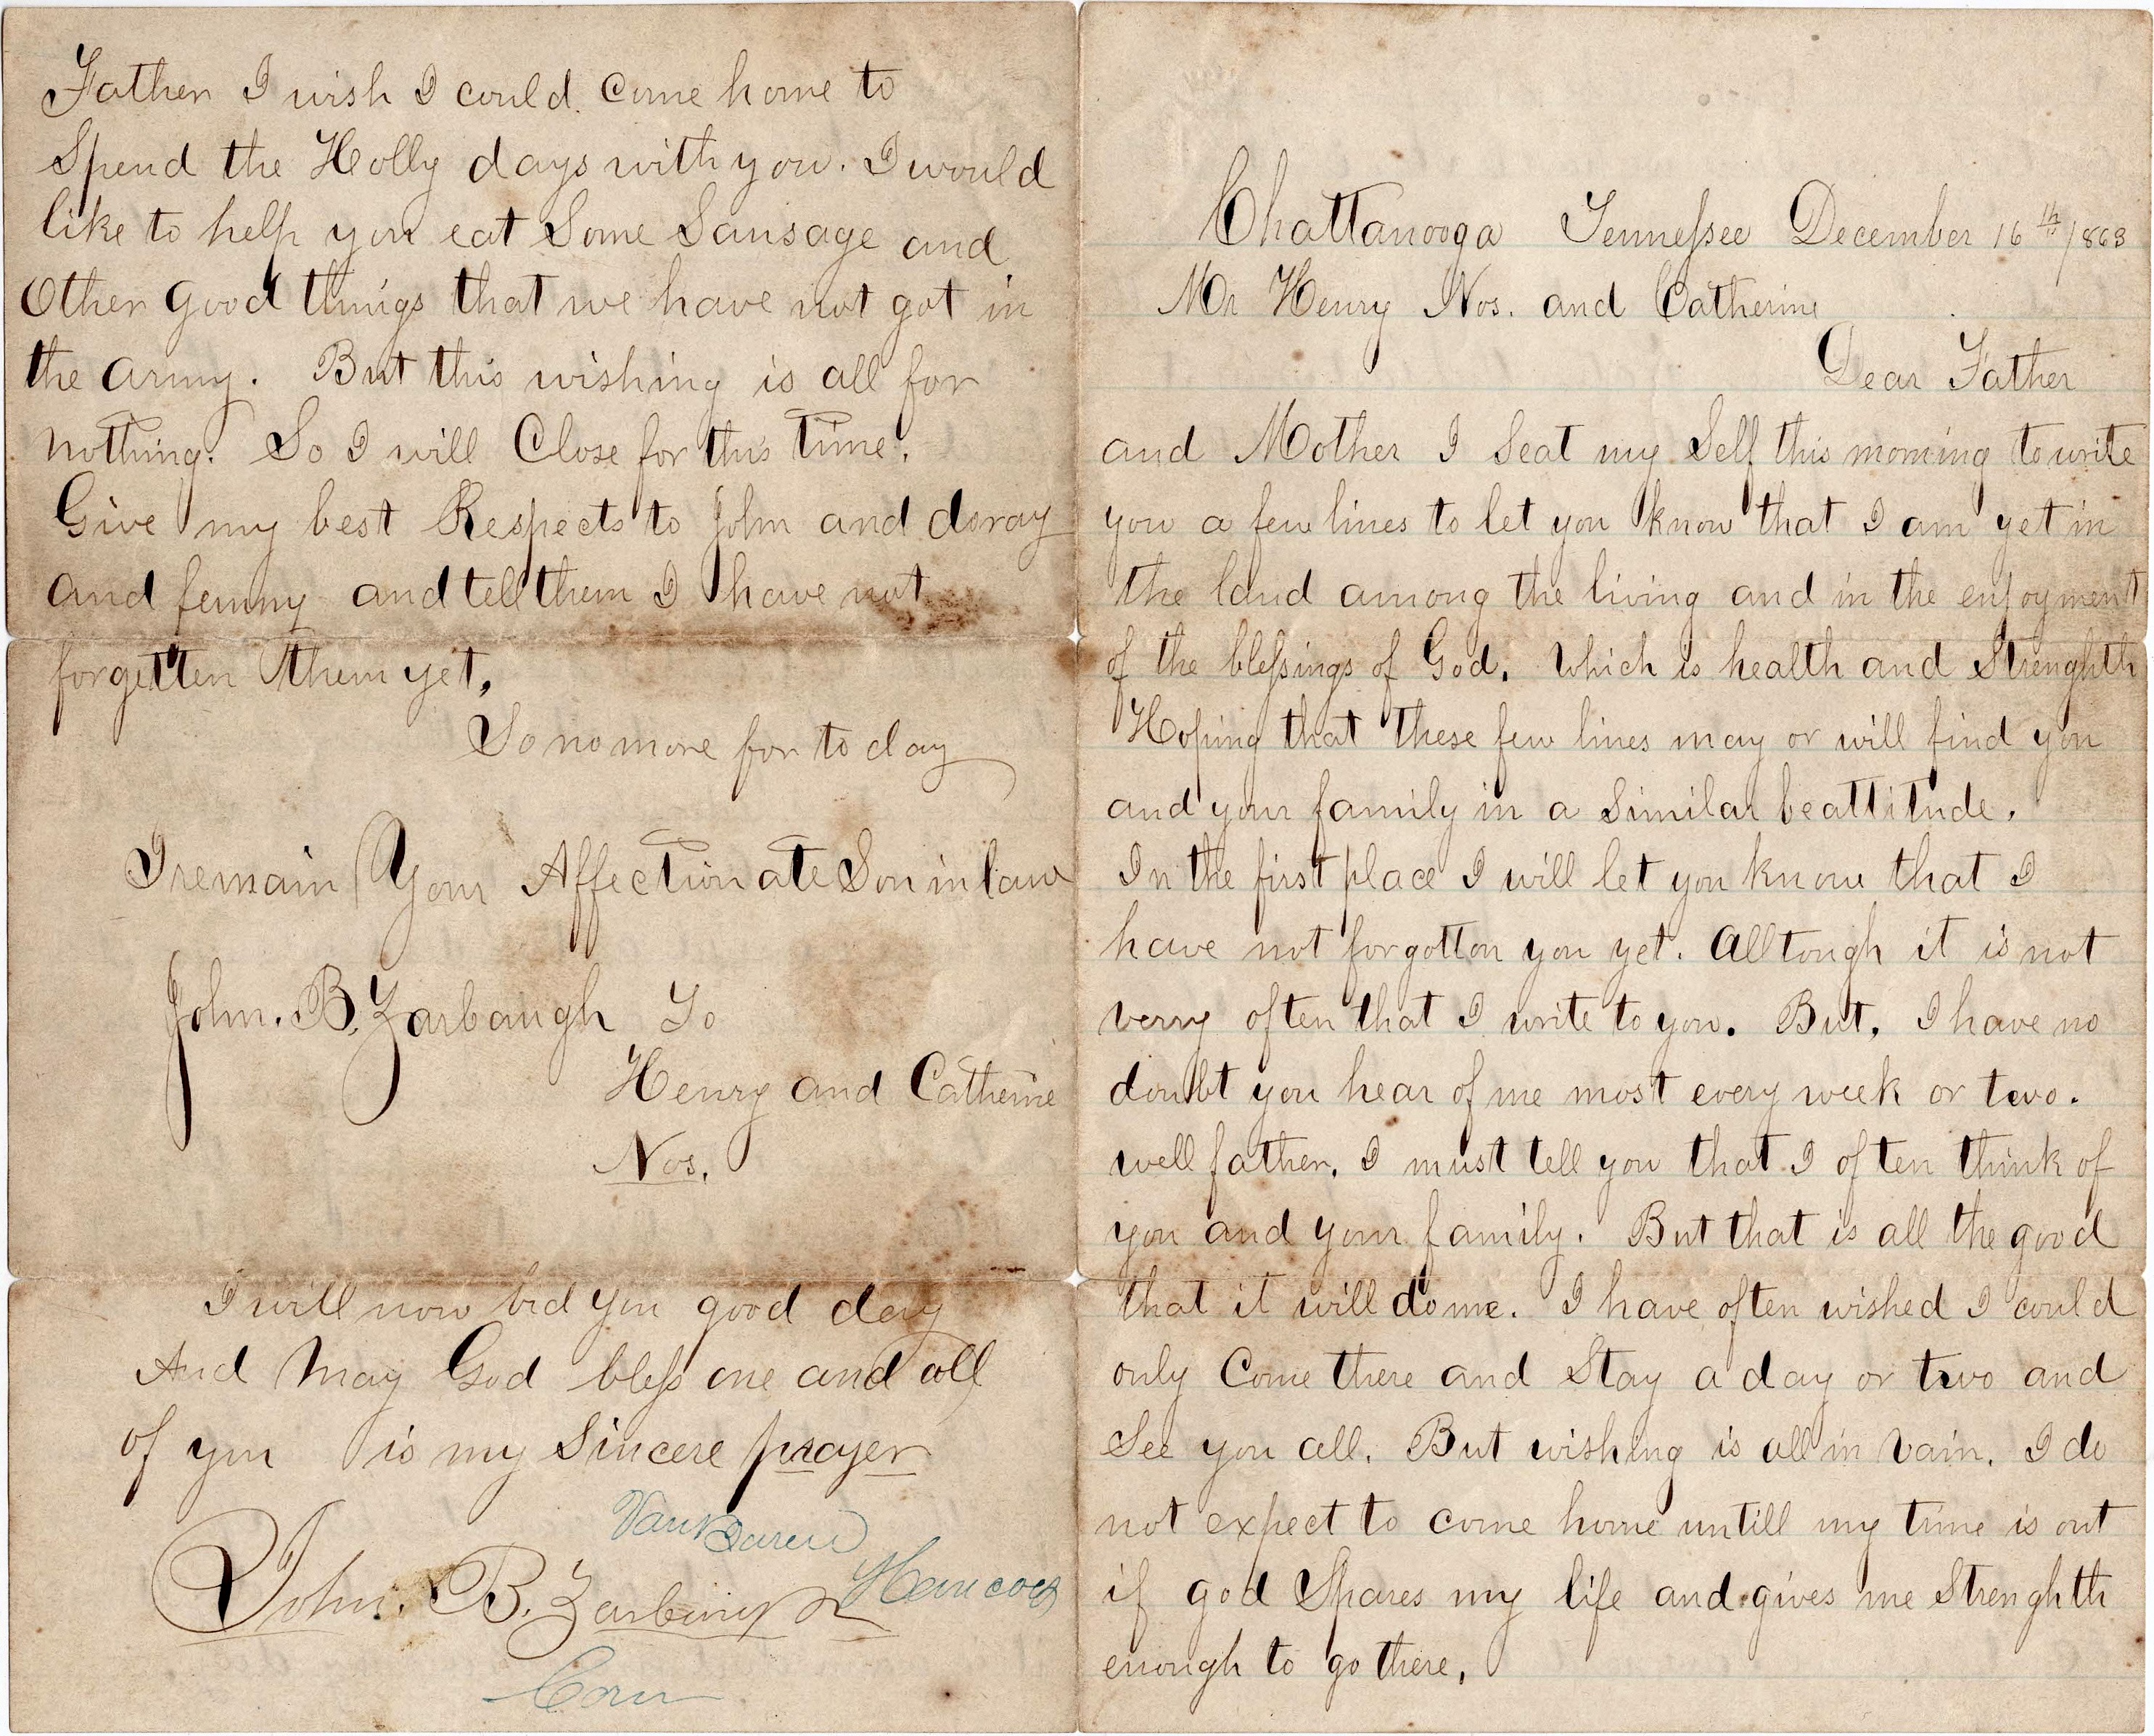 Chattanooga Tennessee December 16th /1863
Mr Henry Nos. and Catherine
Dear Father
and Mother I Seat my Self this morning to write
you a few lines to let you know that I am yet in
the land among the living and in the enjoyment
of the blessings of God. Which is health and Strenghth
Hoping that these few lines may or will find you
and your family in a Similar beattitude.
In the first place I will let you know that I
have not forgotton you yet. Alltough it is not
verry often that I write to you. But, I have no
doubt you hear of me most every week or two.
well father, I must tell you that I often think of
you and your family. But that is all the good
that it will do me. I have often wished I could
only Come there and Stay a day or two and
See you all. But wishing is all in vain. I do
not expect to come home untill my time is out
if god Spares my life and gives me Strenghth
enough to go there.
Father I wish I could come home to
Spend the Holly days with you. I would
like to help you eat Some Sausage and
Other good things that we have not got in
the army. But this wishing is all for
nothing. So I will Close for this time.
Give my best Respects to John and doray
and fenny and tell them I have not
forgetten them yet.
So no more for to day
I remain Your Affectionate Son in law
John. B. Zarbaugh To
Henry and Catherine
Nos.
I will now bid you good day
And May God bless one and all
of you is my Sincere prayer
VanBuren
John. B. Zarbaugh Hancock
Corn